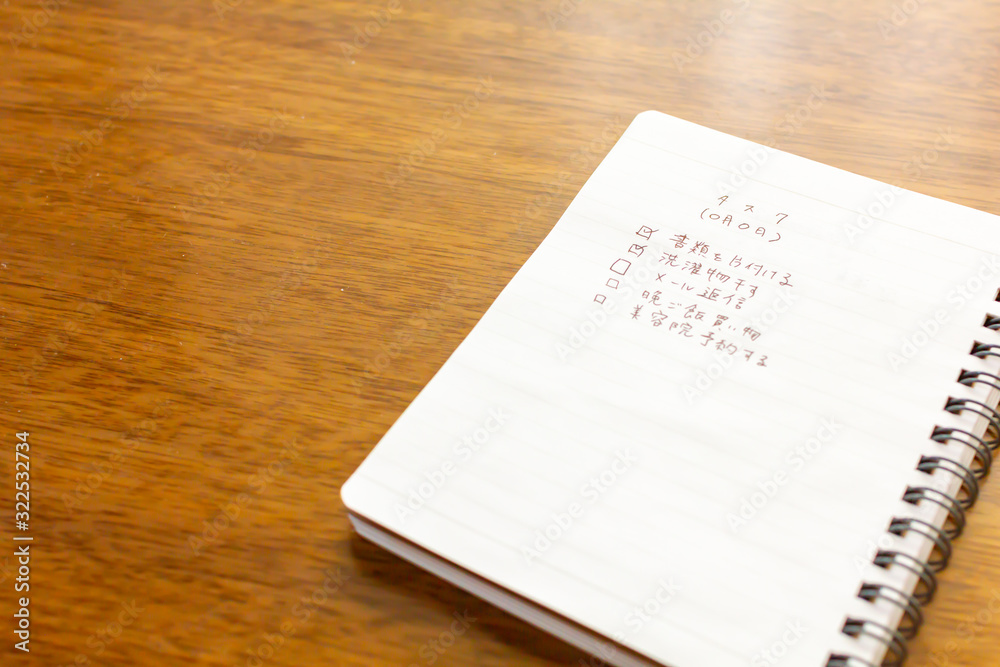 タスク
(0月0日)
☑ 書類を片付ける
☑ 洗濯物干す
☐ メール返信
☐ 晩ご飯買い物
☐ 美容院予約する
Adobe Stock | #322532734